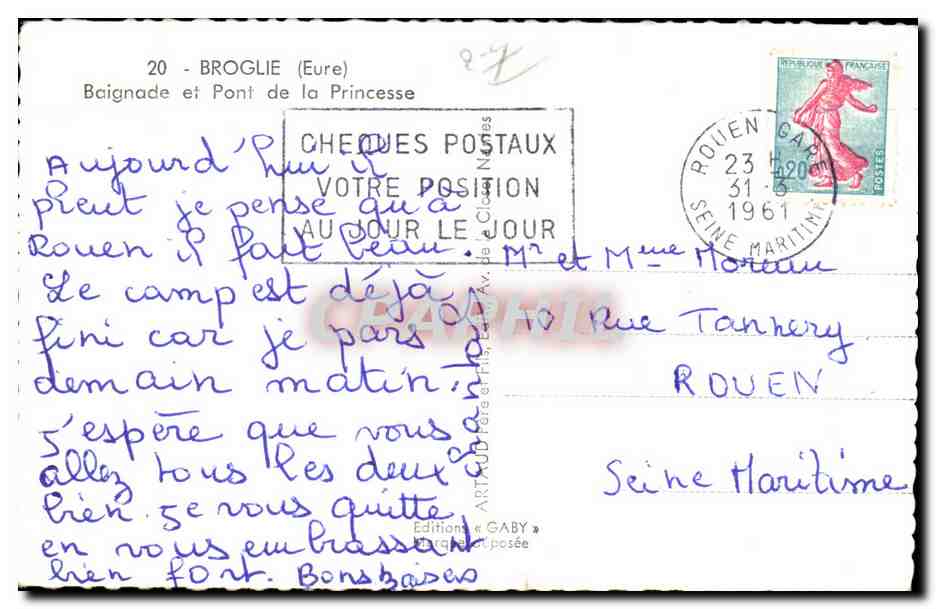 20 - BROGLIE (Eure)
Baignade et Pont de la Princesse
CHEQUES POSTAUX
VOTRE POSITION
AU JOUR LE JOUR
REPUBLIQUE FRANÇAISE
0,20
POSTES
ROUEN GARE
23 H
31 - 3
1961
SEINE MARITIME
Aujourd'hui il
pleut je pense qu'à
Rouen il fait beau.
Le camp est déjà
fini car je pars
demain matin.
J'espère que vous
allez tous les deux
bien. Je vous quitte
en vous embrassant
bien fort. Bons baisers
Chantal
Mr et Mme
10 Rue Tannery
ROUEN
Seine Maritime
ARTAUD Père et Fils, Av. de la Close Nantes
Editions « GABY »
Marque déposée
CPAPHIL